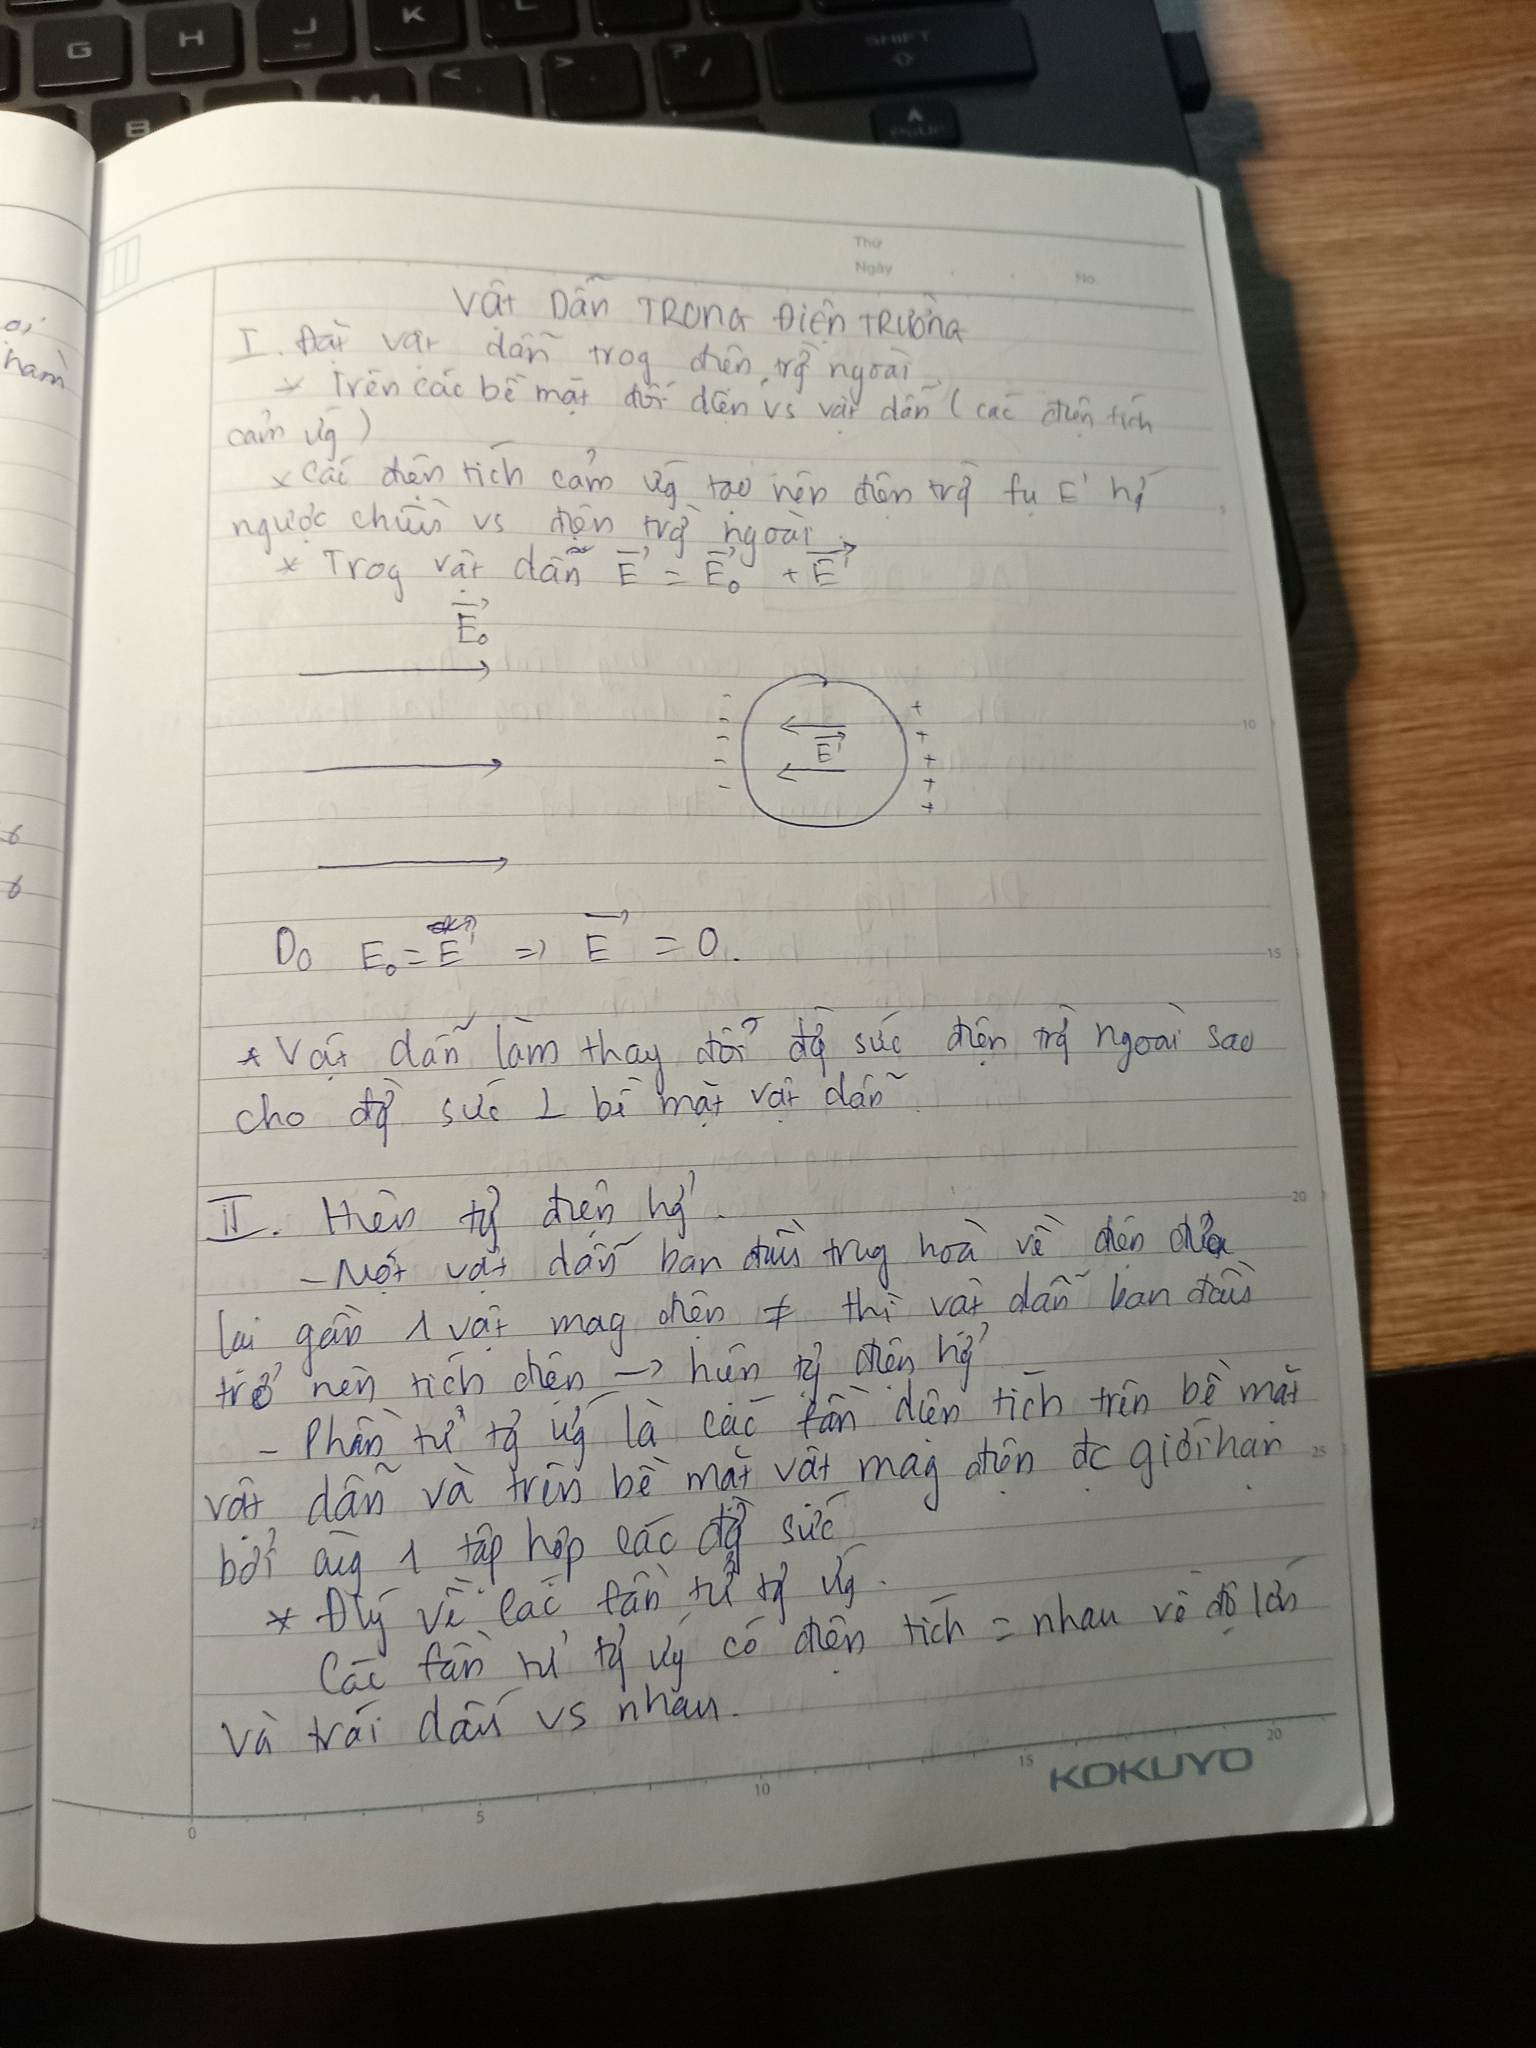 G H J K L
B M < > ? /
SHIFT
PGUP
Thứ
Ngày No.
VẬT DẪN TRONG ĐIỆN TRƯỜNG
I. Đặt vật dẫn trog điện trg ngoài
* Trên các bề mặt đối diện vs vật dẫn (các điện tích
cảm ứg)
* Các điện tích cảm ứg tạo nên điện trg fụ E' hg
ngược chiều vs điện trg ngoài.
* Trog vật dẫn E = E₀ + E'
E₀
- + 
- + 
- E' +
- +
- +
Do E₀ = E' => E = 0.
* Vật dẫn làm thay đổi đg sức điện trg ngoài sao
cho đg sức ⊥ bề mặt vật dẫn
II. Hiện tg điện hg.
- Một vật dẫn ban đầu trug hoà về điện đưa
lại gần 1 vật mag điện ≠ thì vật dẫn ban đầu
trở nên tích điện -> hiện tg điện hg
- Phần tử tg ứg là các fần diện tích trên bề mặt
vật dẫn và trên bề mặt vật mag điện đc giới hạn
bởi cùg 1 tập hợp các đg sức
* Đlý về các fần tử tg ứg.
Các fần tử tg ứg có điện tích = nhau về độ lớn
và trái dấu vs nhau.
KOKUYO
0 5 10 15 20
5
10
15
20
25